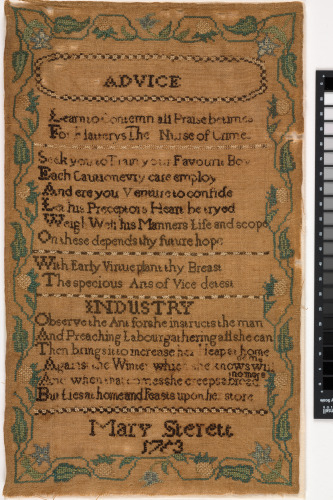 ADVICE
Learn to Contemn all Praise betimes
For Flatterys The Nurse of Crime
Seek you to Train your Favourit Boy
Each Caution evry care employ
And ere you Venture to confide
Let his Preceptors Heart be tryed
Weigh Well his Manners Life and scope
On these depends thy future hope
With Early Virtue plant thy Breast
The specious Arts of Vice detest
INDUSTRY
Observe the Ant for she instructs the man
And Preaching Labour gathering all she can
Then brings it to increase her Heap at home
Against the Winter which she knows will
come
And when that comes she creeps abroad
no more
But Lies at home and Feasts upon her store
Mary Sterett
1773